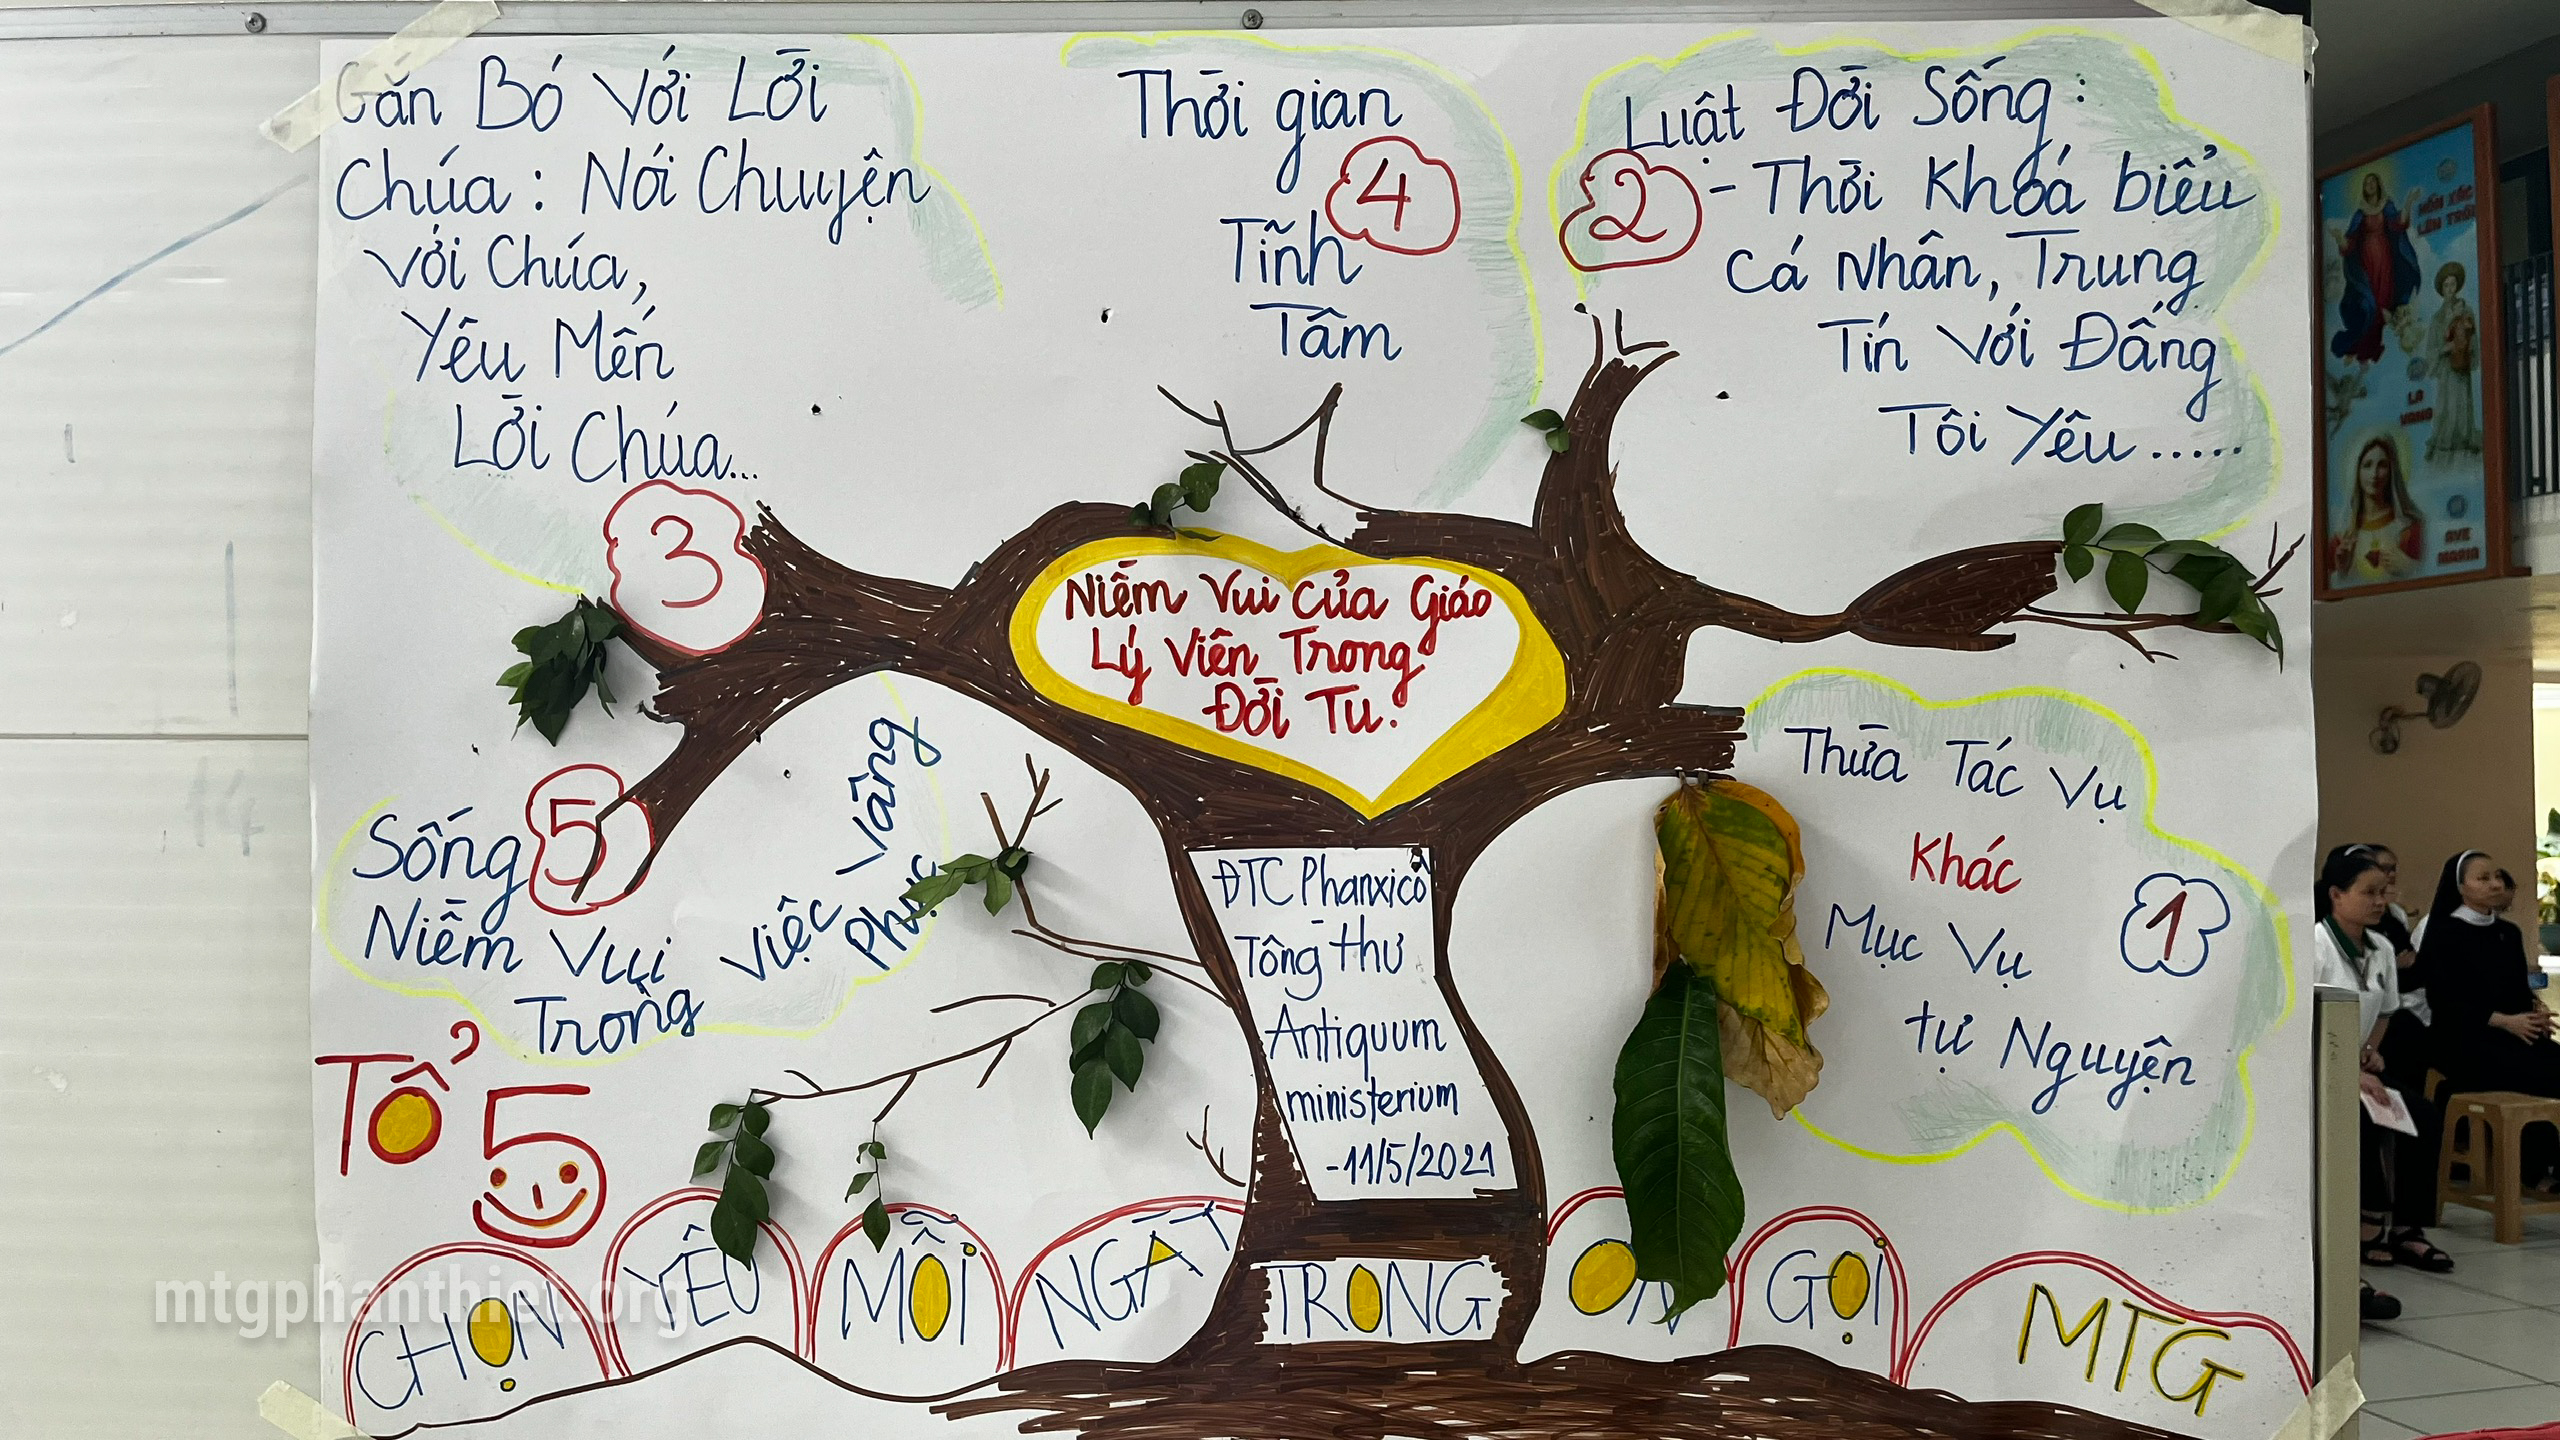 Gắn Bó Với Lời
Chúa: Nói Chuyện
với Chúa,
Yêu Mến
Lời Chúa...
3
Thời gian
4
Tĩnh
Tâm
Luật Đời Sống:
2
- Thời Khoá biểu
Cá Nhân, Trung
Tín Với Đấng
Tôi Yêu.....
Niềm Vui Của Giáo
Lý Viên Trong
Đời Tu.
Sống 5
Niềm Vui
Trong
Việc Vâng
Phục
ĐTC Phanxicô
-
Tông thư
Antiquum
ministerium
-11/5/2021
Thừa Tác Vụ
Khác
Mục Vụ
1
tự Nguyện
Tổ 5
CHỌN YÊU MỖI NGÀY TRONG ƠN GỌI MTG
mtgphanthiet.org
HỒN XÁC
LÊN TRỜI
LA
VANG
AVE
MARIA